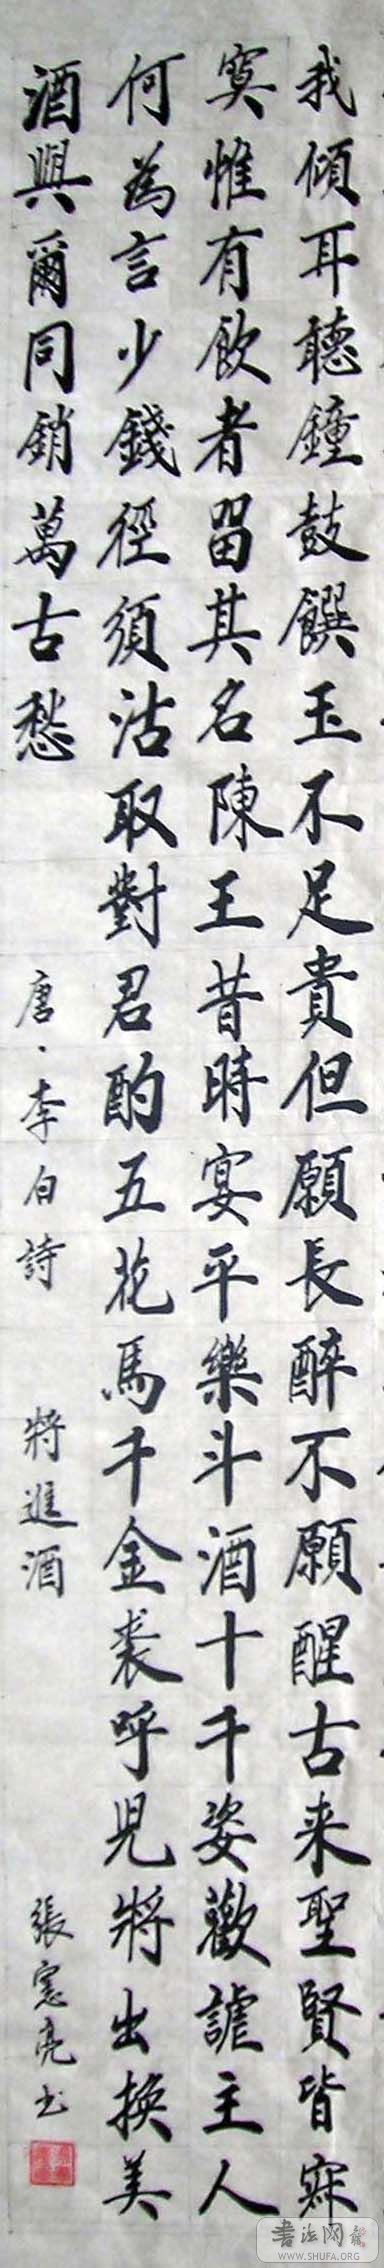 我傾耳聽鐘鼓饌玉不足貴但願長醉不願醒古来聖賢皆寂
寞惟有飲者留其名陳王昔時宴平樂斗酒十千姿歡謔主人
何為言少錢徑須沽取對君酌五花馬千金裘呼児將出換美
酒與爾同銷萬古愁
唐·李白詩 將進酒 張憲亮书
書法网
WWW.SHUFA.ORG